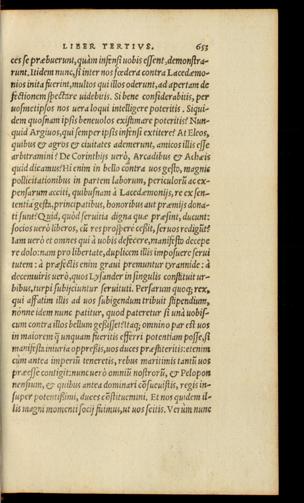 LIBER TERTIVS. 653
ces se præbuerunt, quàm infensi uobis essent, demonstra-
runt. Itidem nunc, si inter nos fœdera contra Lacedæmo-
nios inita fuerint, multos qui illos oderunt, ad apertam de
fectionem spectare uidebitis. Si bene considerabitis, per
uosmetipsos nos uera loqui intelligere poteritis. Siqui-
dem quosnam ipsis beneuolos existimare poteritis? Nun-
quid Argiuos, qui semper ipsis infensi extitere? At Eleos,
quibus & agros & ciuitates ademerunt, amicos illis esse
arbitramini? De Corinthijs uerò, Arcadibus & Achæis
quid dicamus? Hi enim in bello contra uos gesto, magnis
pollicitationibus in partem laborum, periculorū ac ex-
pensarum acciti, quibusnam à Lacedæmonijs, re ex sen-
tentia gesta, principatibus, honoribus aut præmijs dona-
ti sunt? Quid, quòd seruitia digna quæ præsint, ducunt:
socios uerò liberos, cū res prospere cessit, seruos redigūt?
Iam uerò et omnes qui à uobis defecere, manifesto decepe
re dolo: nam pro libertate, duplicem illis imposuere serui
tutem: à præfectis enim graui premuntur tyrannide: à
decemuiris uerò, quos Lysander in singulis constituit ur-
bibus, turpi subijciuntur seruituti. Persarum quoq; rex,
qui affatim illis ad uos subigendum tribuit stipendium,
nónne idem nunc patitur, quod pateretur si unà uobis-
cum contra illos bellum gessisset? Itaq; omnino par est uos
in maiorem q̃ unquam fueritis efferri potentiam posse, si
manifesta iniuria oppressis, uos duces præstiteritis: etenim
cùm antea imperiū teneretis, rebus maritimis tantū uos
præesse contigit: nunc uerò omniū nostrorū, & Pelopon
nensium, & quibus antea dominari cōsueuistis, regis in-
super potentissimi, duces cōstituemini. Et nos quidem il-
lis magni momenti socij fuimus, ut uos scitis. Verùm nunc